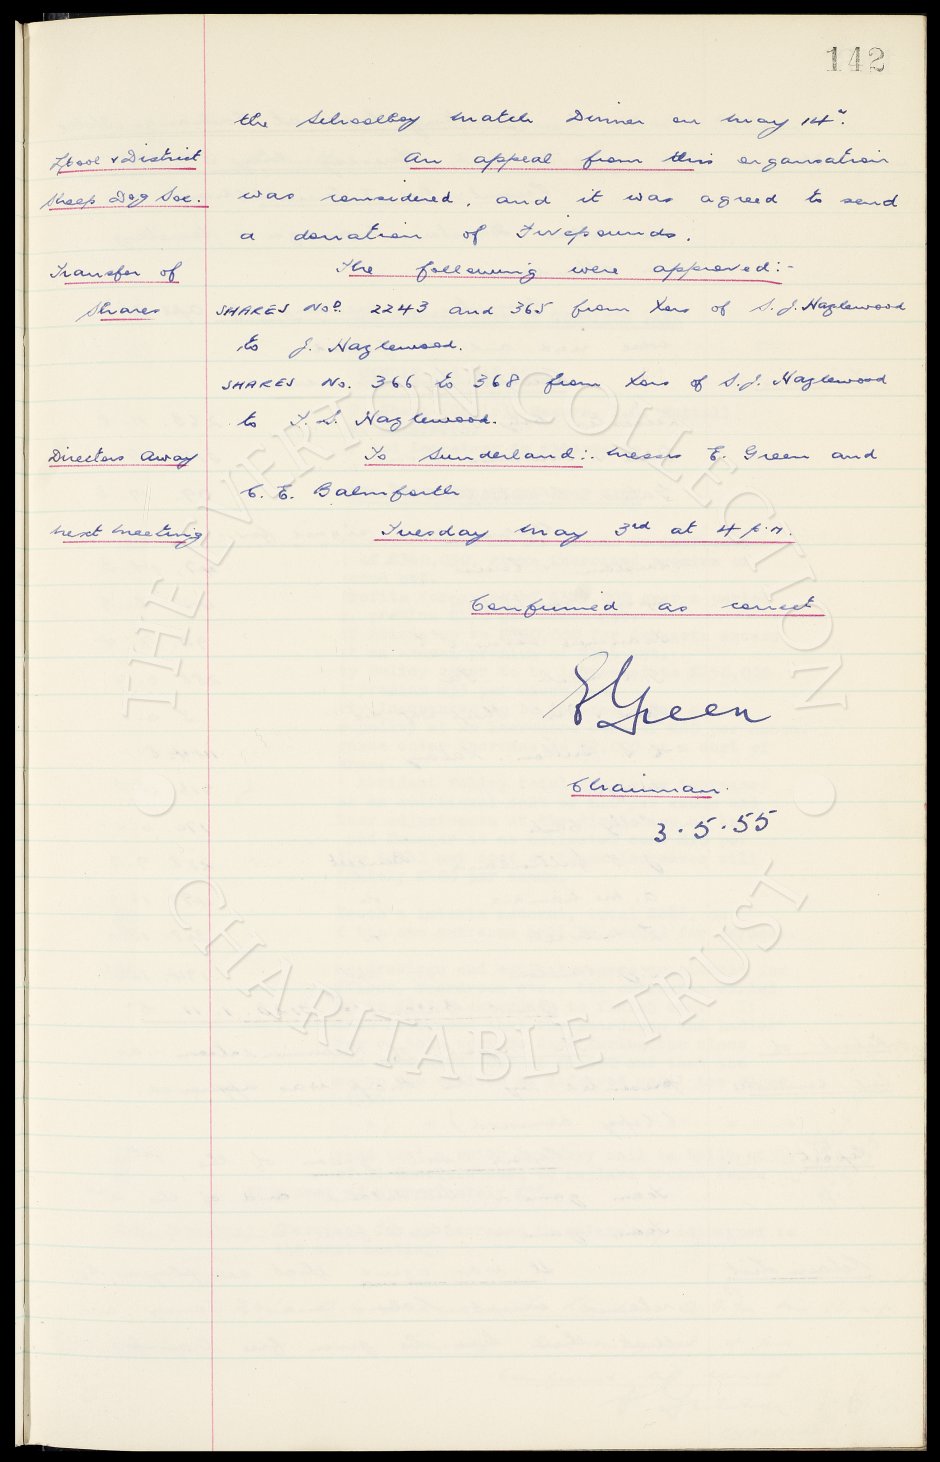 142
the Schoolboy Match Dinner on May 14".
L'pool & District An appeal from this organisation
Sheep Dog Soc. was considered, and it was agreed to send
a donation of Fivepounds.
Transfer of The following were approved:-
Shares SHARES Nos. 2243 and 365 from Xors of S. J. Hazlewood
to J. Hazlewood.
SHARES No. 366 to 368 from Xors of S. J. Hazlewood
to T. S. Hazlewood.
Directors Away To Sunderland:- Messrs E. Green and
C. E. Balmforth
Next Meeting Tuesday May 3rd at 4 p.m.
Confirmed as correct
E Green
Chairman.
3.5.55
THE EVERTON COLLECTION
CHARITABLE TRUST